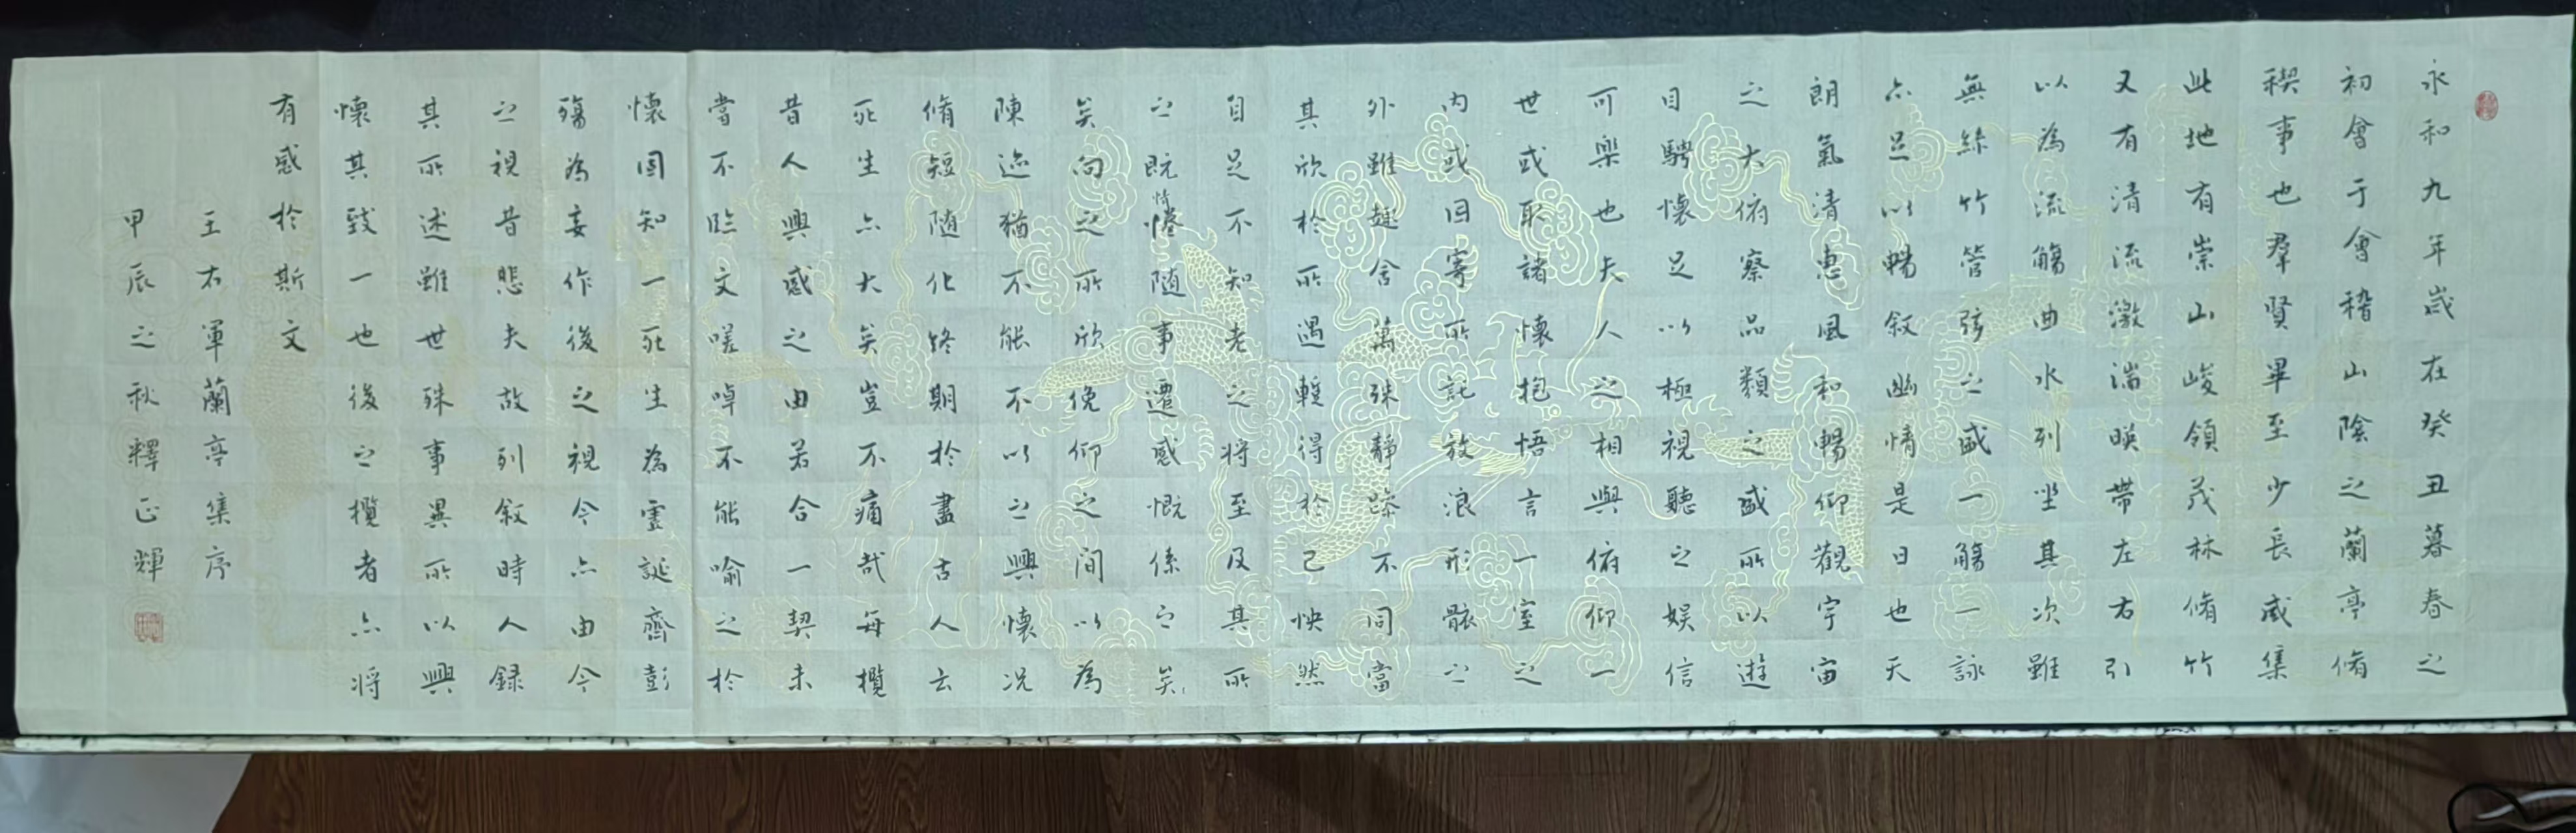 永和九年歲在癸丑暮春之
初會于會稽山陰之蘭亭脩
稧事也羣賢畢至少長咸集
此地有崇山峻領茂林脩竹
又有清流激湍暎帶左右引
以為流觴曲水列坐其次雖
無絲竹管弦之盛一觴一詠
亦足以暢敘幽情是日也天
朗氣清惠風和暢仰觀宇宙
之大俯察品類之盛所以遊
目騁懷足以極視聽之娛信
可樂也夫人之相與俯仰一
世或取諸懷抱悟言一室之
內或因寄所託放浪形骸之
外雖趣舍萬殊靜躁不同當
其欣於所遇蹔得於己怏然
自足不知老之將至及其所
之既惓隨事遷感慨係之矣
矣向之所欣俛仰之間以為
陳迹猶不能不以之興懷況
脩短隨化終期於盡古人云
死生亦大矣豈不痛哉每攬
昔人興感之由若合一契未
嘗不臨文嗟悼不能喻之於
懷固知一死生為虛誕齊彭
殤為妄作後之視今亦由今
之視昔悲夫故列敘時人錄
其所述雖世殊事異所以興
懷其致一也後之攬者亦將
有感於斯文
王右軍蘭亭集序
甲辰之秋釋正輝